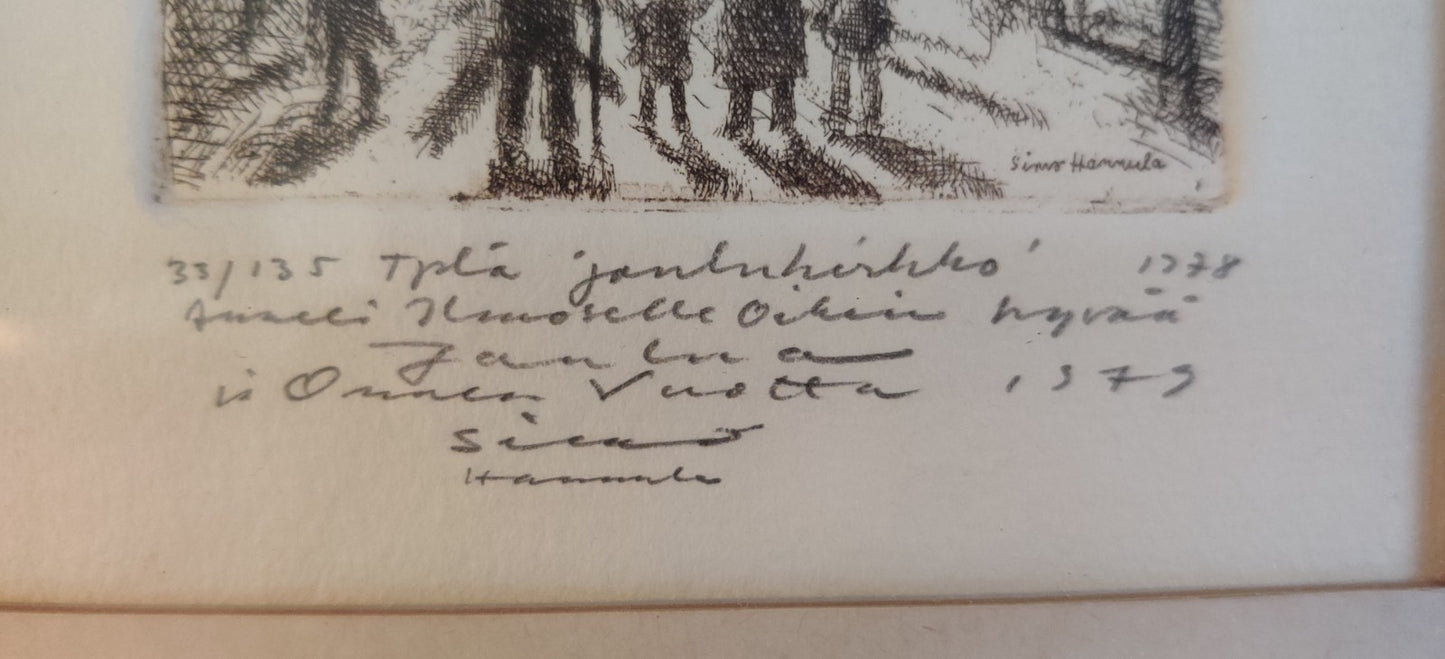 Simo Hannula
33/135 Tplä 'joulukirkko' 1978
Anneli Ilmoselle Oikein hyvää
Joulua
ja Onnea Vuotta 1979
Simo
Hannula